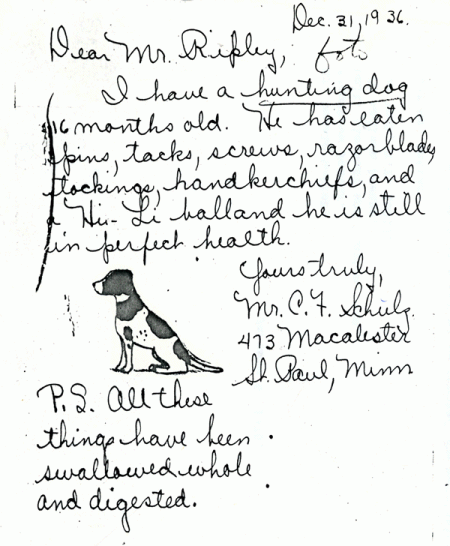 Dec. 31, 1936.
Dear Mr. Ripley,
foto
I have a hunting dog
16 months old. He has eaten
pins, tacks, screws, razor blades,
stockings, handkerchiefs, and
a Hi-Li ball and he is still
in perfect health.
Yours truly,
Mr. C. F. Schulz
473 Macalester
St. Paul, Minn
P.S. All these
things have been
swallowed whole
and digested.